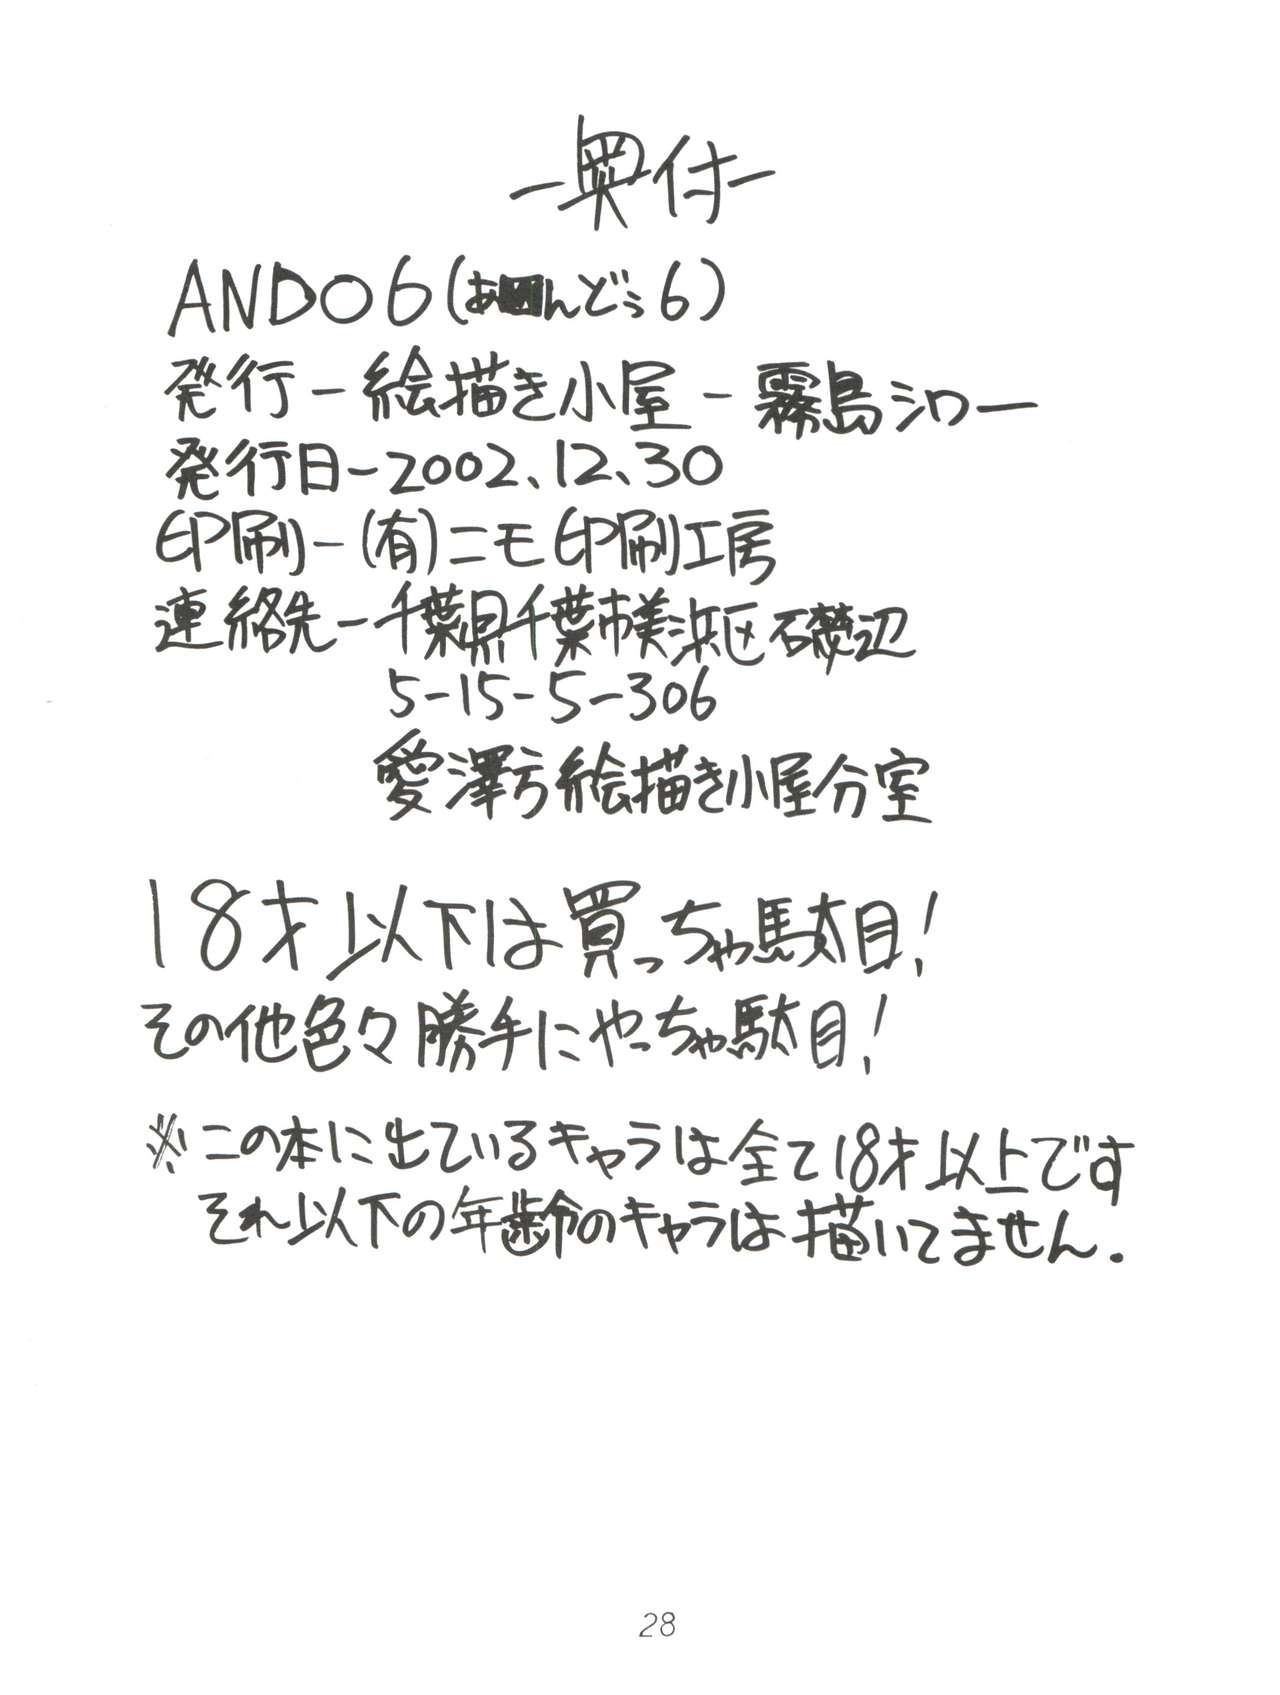 -奥付-
AND06(あ んどぅ6)
発行-絵描き小屋-霧島シロー
発行日-2002.12.30
印刷-(有)ニモ印刷工房
連絡先-千葉県千葉市美浜区磯辺
5-15-5-306
愛澤方絵描き小屋分室
18才以下は買っちゃ駄目!
その他色々勝手にやっちゃ駄目!
※この本に出ているキャラは全て18才以上です
それ以下の年齢のキャラは描いてません.
28